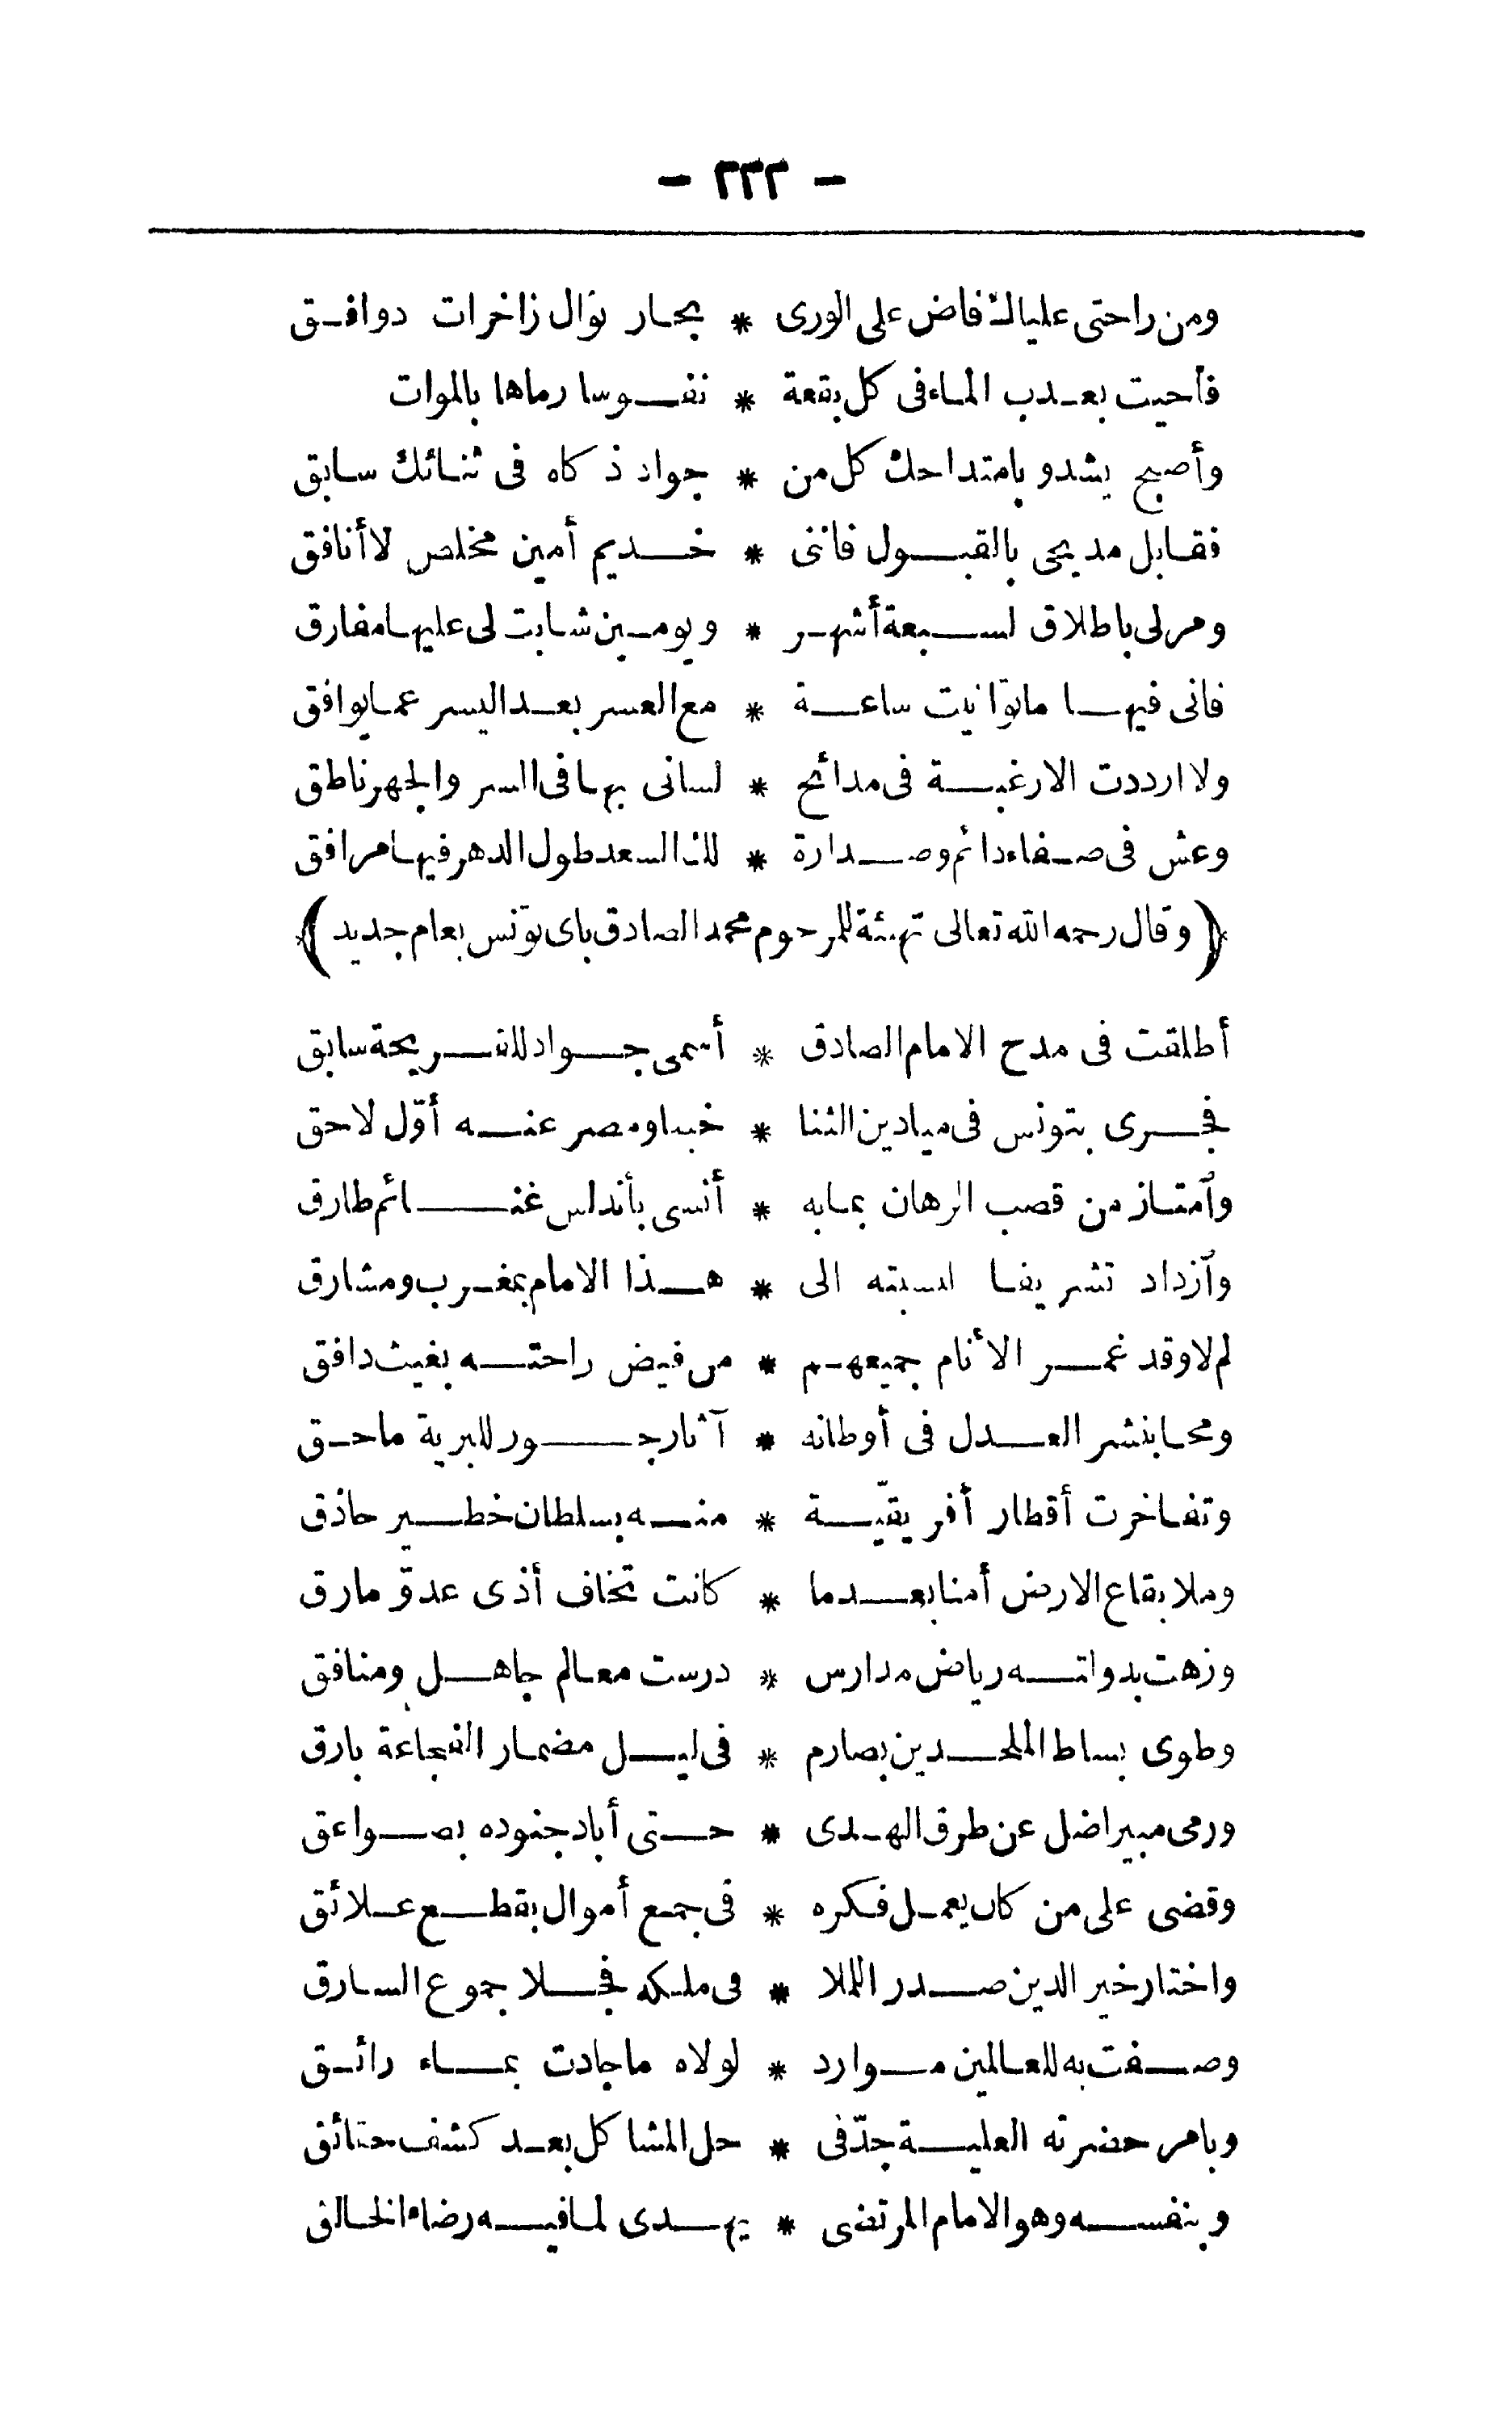 - ٣٣٢ -
ومن راحتى علياك فاض على الورى * بحار نوال زاخرات دوافق
فأحيت بعذب الماء فى كل بقعة * نفوسا رماها بالموات
وأصبح يشدو بامتداحك كل من * جواد ذكاه فى ثنائك سابق
فقابل مديحى بالقبول فاننى * خديم أمين مخلص لا أنافق
ومر لى باطلاق لسبعة أشهر * ويومين شابت لى عليها مفارق
فانى فيها ما توانيت ساعة * مع العسر بعد اليسر عما يوافق
ولا ارددت الا رغبة فى مدائح * لسانى بها فى السر والجهر ناطق
وعش فى صفاء دائم وصدارة * لك السعد طول الدهر فيها مرافق
﴿ وقال رحمه الله تعالى تهنئة للمرحوم محمد الصادق باى تونس بعام جديد ﴾
أطلقت فى مدح الامام الصادق * أسمى جواد للقريحة سابق
فجرى بتونس فى ميادين الثنا * خببا ومصر عنه أوّل لاحق
وٱمتاز من قصب الرهان بمابه * أنسى بأندلس غنائم طارق
وٱزداد تشريفا لسبته الى * هذا الامام بمغرب ومشارق
لم لا وقد غمر الأنام جميعهم * من فيض راحته بغيث دافق
ومحا بنشر العدل فى أوطانه * آثار جور للبرية ماحق
وتفاخرت أقطار أفريقيّة * منه بسلطان خطير حاذق
وملا بقاع الارض أمنا بعدما * كانت تخاف أذى عدوّ مارق
وزهت بدولته رياض مدارس * درست معالم جاهل ومنافق
وطوى بساط الملحدين بصارم * فى ليل مضمار الفجاعة بارق
ورمى مبيرا ضل عن طرق الهدى * حتى أباد جنوده بصواعق
وقضى على من كان يعمل فكره * فى جمع أموال بقطع علائق
واختار خير الدين صدر الملا * فى ملكه فجلا جموع السارق
وصفت به للعالمين موارد * لولاه ما جادت بماء رائق
وبامر حضرته العلية جدّ فى * حل المشاكل بعد كشف حقائق
وبنفسه وهو الامام المرتضى * يهدى لما فيه رضاء الخالق